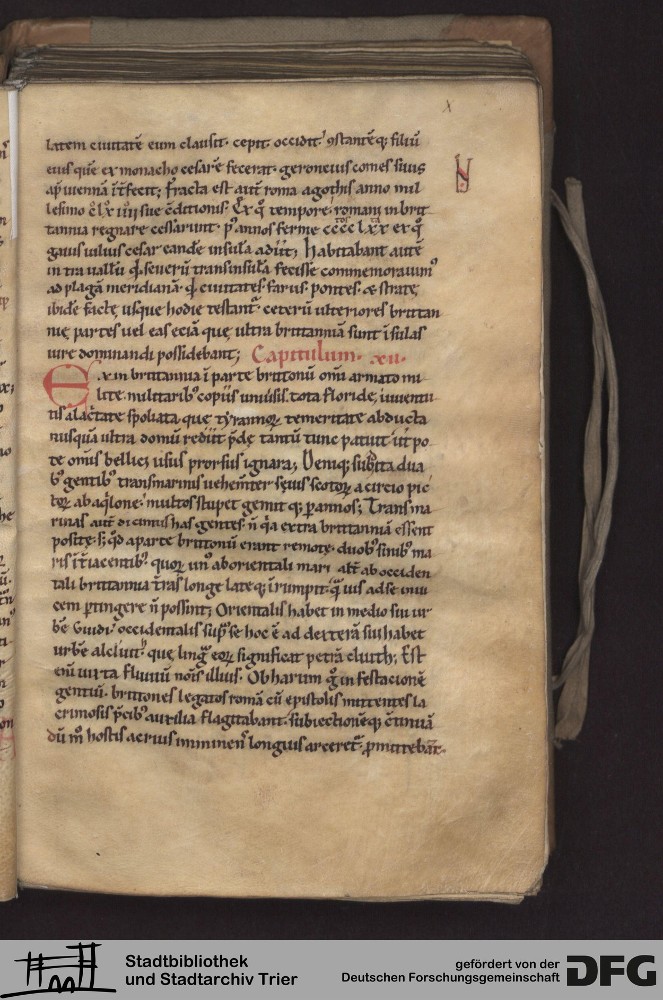 X
latem ciuitatē eum clausit. cepit. occidit. ꝯstantēq; filiū
eius quē ex monacho cesarē fecerat. geronцius comes suus
ap̄ uiennā īt̄fecit; Fracta est aut̄ roma agothis anno mil
lesimo c̄ lx iiii sue c̄ditionis. Ex q° tempore romani in brit
tannia regnare cessarunt. p̄ annos ferme cccc lxx ex q°
gaius iulius cesar eandē insulā adiit; Habitabant autē
intra uallū qd̄ seuerū transinsulā fecisse commemorauim᷒
ad plagā meridianā. qd̄ ciuitates. farus. pontes. & stratę
ibidē factę usque hodie testant᷑. ceterū ulteriores brittan
nię partes uel eas eciā quę ultra brittanniā sunt īsulas
iure dominandi possidebant; Capitulum. xii.
Ex in brittannia ī parte brittonū om̄i armato mi
lite. militarib᷒ copiis uniūsis. tota floride iuuentu
tis alacritate spoliata. que tyrannoꝝ temeritate abducta
nusquā ultra domū rediit p̄dę tantū tunc patuit. ut po
te om̄is bellici usus prorsus ignara; Deniq; subita dua
b᷒ gentib᷒ transmarinis uehemt̄er sęuis scotoꝝ a circio pic
toꝝ ab aq̇lone. multos stupet gemit q; p annos; Transma
rinas aut̄ dicimus has gentes. n̄ qa extra brittanniā essent
positę. s; qd̄ aparte brittonū erant remotę. duob᷒ sinib᷒ ma
ris īt̄iacentib᷒. quoꝝ un᷒ aborientali mari. alt̄ ab occiden
tali brittannię t̄ras longe lateq; irrumpit. q̄uis adse inui
cem ptingere n̄ possint; Orientalis habet in medio sui ur
bē Giudi. occidentalis sup̄ se hoc ē ad dexterā sui habet
urbē alcluit. quę lingua eoꝝ significat petrā cluith; Est
enī iuxta fluuiū nōis illius. Ob harum g° infestacionē
gentiū. brittones legatos romā cū epistolis mittentes la
crimosis p̄cib᷒ auxilia flagitabant. subiectionēq; c̄tinuā
dū m° hostis acrius imminens longius arceret᷑. pmittebāt.
N
Stadtbibliothek
und Stadtarchiv Trier
gefördert von der
Deutschen Forschungsgemeinschaft
DFG